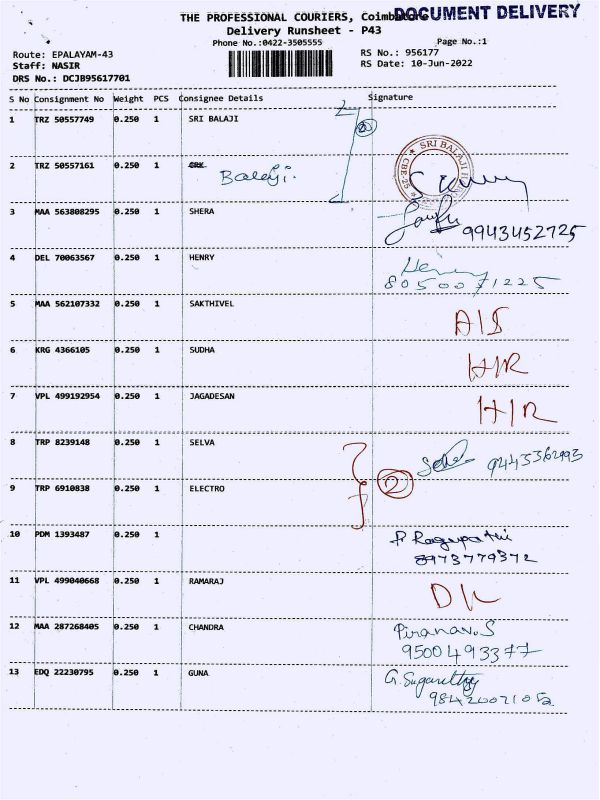 THE PROFESSIONAL COURIERS, Coimbatore
DOCUMENT DELIVERY
Delivery Runsheet - P43
Phone No.:0422-3505555
Page No.:1
Route: EPALAYAM-43
RS No.: 956177
Staff: NASIR
RS Date: 10-Jun-2022
DRS No.: DCJB95617701
S No Consignment No Weight PCS Consignee Details Signature
1 TRZ 50557749 0.250 1 SRI BALAJI
SRI BALAJI
2 TRZ 50557161 0.250 1 Balaji.
3 MAA 563808295 0.250 1 SHERA
9943452725
4 DEL 70063567 0.250 1 HENRY Henry
8050071225
5 MAA 562107332 0.250 1 SAKTHIVEL A/S
6 KRG 4366105 0.250 1 SUDHA H/R
7 VPL 499192954 0.250 1 JAGADESAN H/R
8 TRP 8239148 0.250 1 SELVA 9443362993
2
9 TRP 6910838 0.250 1 ELECTRO
10 PDM 1393487 0.250 1 P Ragupathi
8973779372
11 VPL 499040668 0.250 1 RAMARAJ D/L
12 MAA 287268405 0.250 1 CHANDRA Piranav.S
9500493377
13 EDQ 22230795 0.250 1 GUNA